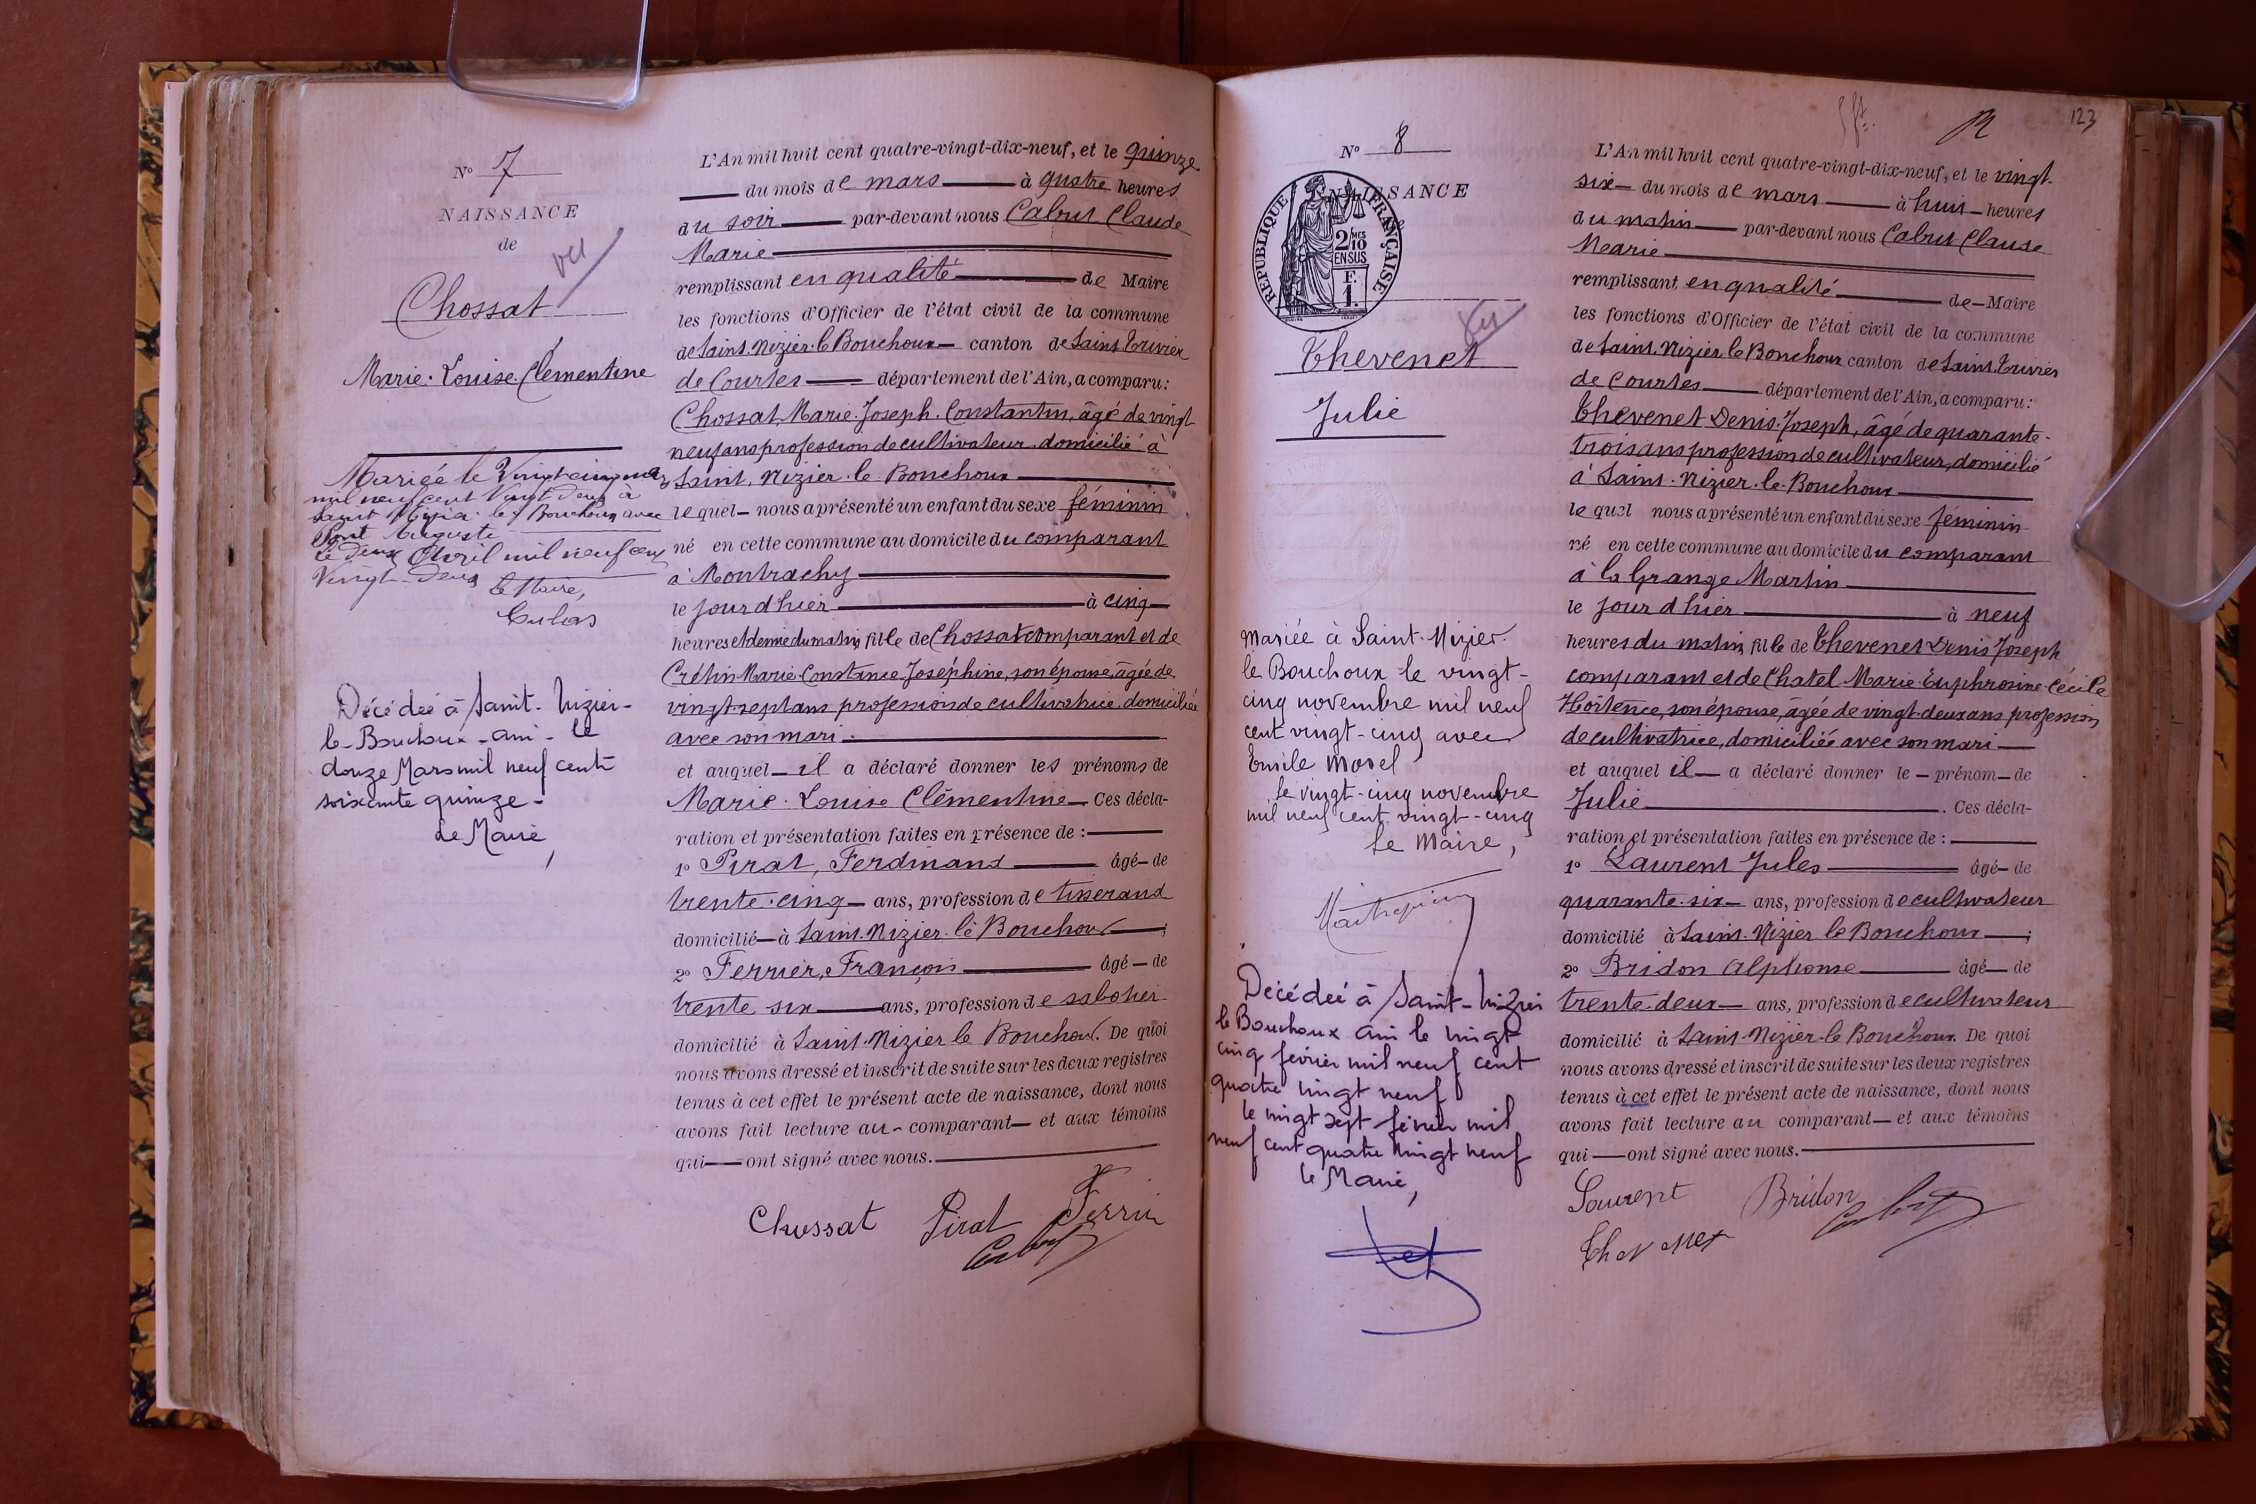 N° 7
NAISSANCE
de
vu
Chossat
Marie. Louise. Clémentine
Mariée le Vingt cinq mars
mil neuf cent Vingt deux à
Saint Nizier le Bouchoux avec
Auguste
Le deux Avril mil neuf cent
Vingt-deux
Le Maire,
Décédée à Saint-Nizier-
le-Bouchoux-ain-le
douze Mars mil neuf cent
soixante quinze-
Le Maire,
L'An mil huit cent quatre-vingt-dix-neuf, et le quinze
du mois de mars à quatre heures
du soir par-devant nous Cabut Claude
Marie
remplissant en qualité de Maire
les fonctions d'Officier de l'état civil de la commune
de Saint. Nizier. le Bouchoux canton de Saint Trivier
de Courtes département de l'Ain, a comparu:
Chossat, Marie. Joseph. Constantin, âgé de vingt
neuf ans profession de cultivateur domicilié à
Saint. Nizier. le. Bouchoux
lequel nous a présenté un enfant du sexe féminin
né en cette commune au domicile du comparant
à Montrachy
le jour d'hier à cinq
heures et demie du matin, fille de Chossat comparant et de
Crétin Marie Constance Joséphine, son épouse, âgée de
vingt-sept ans profession de cultivatrice, domiciliée
avec son mari.
et auquel il a déclaré donner les prénoms de
Marie. Louise Clémentine. Ces décla-
ration et présentation faites en présence de:
1° Pirat, Ferdinand âgé de
trente-cinq ans, profession de tisserand
domicilié à Saint. Nizier. le Bouchoux;
2° Ferrier, François âgé de
trente six ans, profession de sabotier
domicilié à Saint. Nizier le Bouchoux. De quoi
nous avons dressé et inscrit de suite sur les deux registres
tenus à cet effet le présent acte de naissance, dont nous
avons fait lecture au comparant et aux témoins
qui ont signé avec nous.
Chossat Pirat Ferrier
Cabut
123
N° 8
NAISSANCE
de
REPUBLIQUE FRANÇAISE
2/10 MES
EN SUS
F.
1.
vu
Thevenet
Julie
Mariée à Saint-Nizier.
le Bouchoux le vingt-
cinq novembre mil neuf
cent vingt-cinq avec
Emile Morel
Le vingt-cinq novembre
mil neuf cent vingt-cinq
Le Maire,
Décédée à Saint-Nizier
le Bouchoux ain le vingt
cinq février mil neuf cent
quatre vingt neuf
le vingt sept février mil
neuf cent quatre vingt neuf
le Maire,
L'An mil huit cent quatre-vingt-dix-neuf, et le vingt-
six du mois de mars à huit heures
du matin par-devant nous Cabut Clause
Marie
remplissant en qualité de Maire
les fonctions d'Officier de l'état civil de la commune
de Saint. Nizier le Bouchoux canton de Saint. Trivier
de Courtes département de l'Ain, a comparu:
Thevenet Denis. Joseph, âgé de quarante-
trois ans profession de cultivateur, domicilié
à Saint. Nizier. le. Bouchoux
lequel nous a présenté un enfant du sexe féminin
né en cette commune au domicile du comparant
à la Grange Martin
le jour d'hier à neuf
heures du matin, fille de Thevenet Denis Joseph
comparant et de Chatel Marie Euphrosine Cécile
Hortence, son épouse, âgée de vingt-deux ans profession
de cultivatrice, domiciliée avec son mari
et auquel il a déclaré donner le prénom de
Julie. Ces décla-
ration et présentation faites en présence de:
1° Laurent Jules âgé de
quarante-six ans, profession de cultivateur
domicilié à Saint. Nizier le Bouchoux;
2° Bridon Alphonse âgé de
trente-deux ans, profession de cultivateur
domicilié à Saint. Nizier-le Bouchoux. De quoi
nous avons dressé et inscrit de suite sur les deux registres
tenus à cet effet le présent acte de naissance, dont nous
avons fait lecture au comparant et aux témoins
qui ont signé avec nous.
Laurent Bridon Cabut
Thevenet